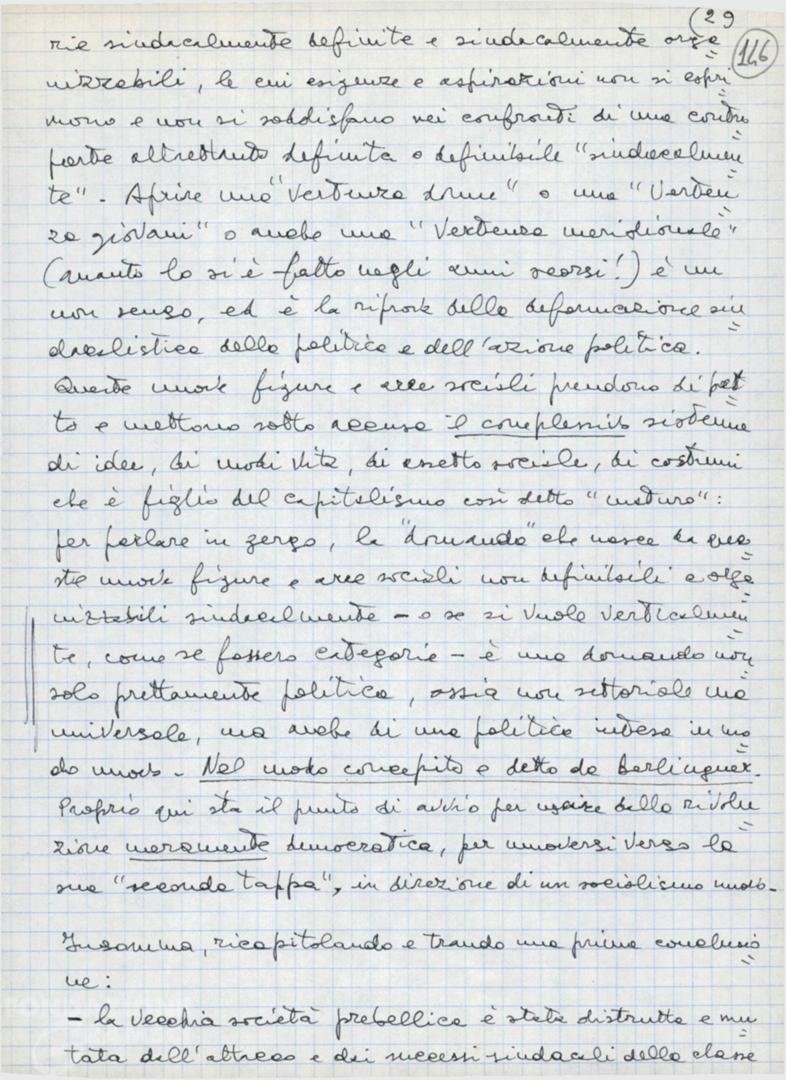 (29
146
rie sindacalmente definite e sindacalmente orga=
nizzabili, le cui esigenze e aspirazioni non si espri=
mono e non si soddisfano nei confronti di una contro=
parte altrettanto definita o definibile "sindacalmen=
te". Aprire una "vertenza donne" o una "Verten=
za giovani" o anche una "Vertenza meridionale"
(quanto lo si è fatto negli anni scorsi!) è un
non senso, ed è la riprova della deformazione sin=
dacalistica della politica e dell'azione politica.
Queste nuove figure e aree sociali prendono di pet=
to e mettono sotto accusa il complessivo sistema
di idee, di modi vita, di assetto sociale, di costumi
che è figlio del capitalismo così detto "maturo":
per parlare in gergo, la "domanda" che nasce da que=
ste nuove figure e aree sociali non definibili e orga=
nizzabili sindacalmente - o se si vuole verticalmen=
te, come se fossero categorie - è una domanda non
solo prettamente politica, ossia non settoriale ma
universale, ma anche di una politica intesa in mo=
do nuovo. Nel modo concepito e detto da Berlinguer.
Proprio qui sta il punto di avvio per uscire dalla rivolu=
zione meramente democratica, per muoversi verso la
sua "seconda tappa", in direzione di un socialismo nuovo.
Insomma, ricapitolando e traendo una prima conclusio=
ne:
- la vecchia società prebellica è stata distrutta e mu=
tata dall'attacco e dai successi sindacali della classe